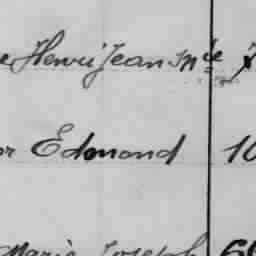 e Henri Jean Mie
or Edmond 10
Marie Joseph 60